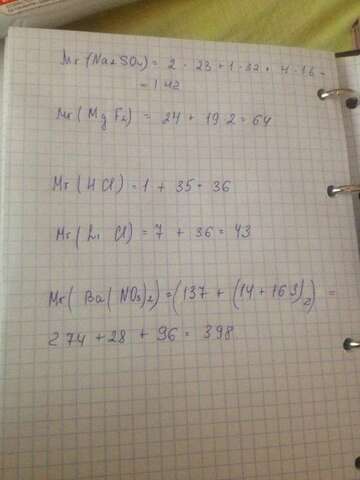 Mr(Na2SO4) = 2 · 23 + 1 · 32 + 4 · 16 =
= 142
Mr(MgF2) = 24 + 19·2 = 64
Mr(HCl) = 1 + 35 = 36
Mr(LiCl) = 7 + 36 = 43
Mr(Ba(NO3)2) = (137 + (14 + 16·3)2) =
274 + 28 + 96 = 398